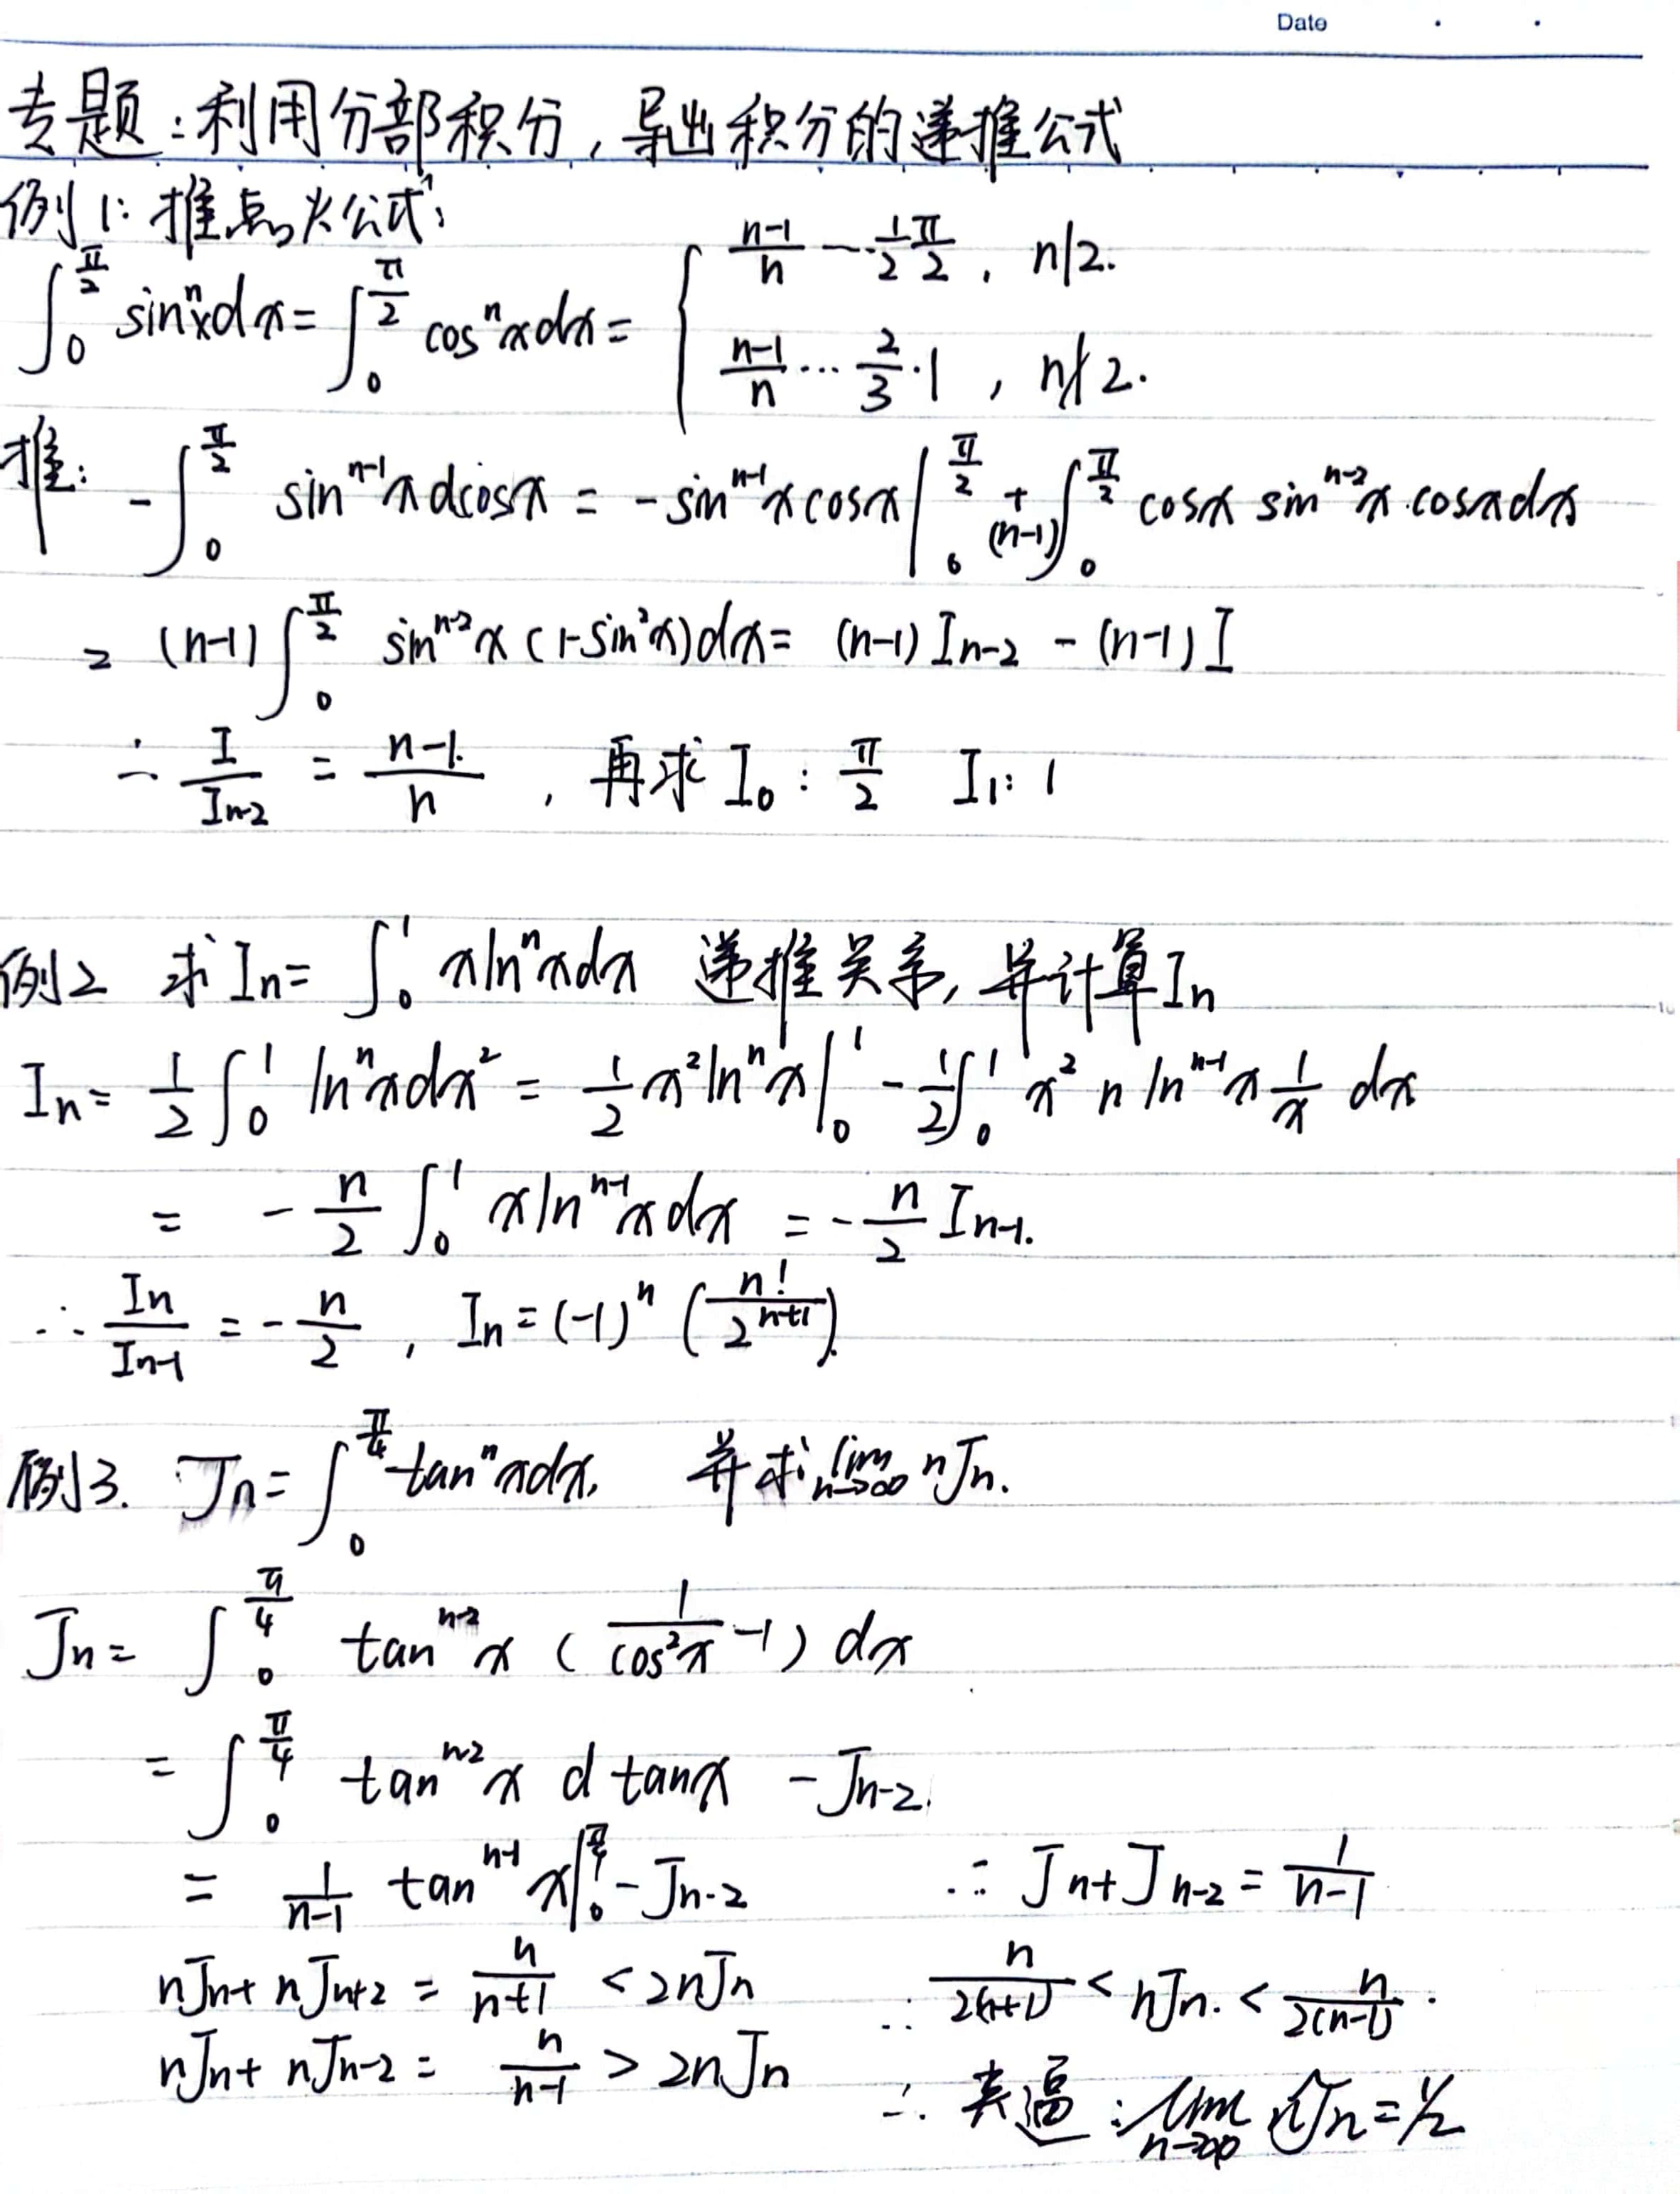 Date
专题：利用分部积分，导出积分的递推公式
例1：推点火公式：
∫₀^{π/2} sinⁿxdx = ∫₀^{π/2} cosⁿxdx = { (n-1)/n ⋯ 1/2 π/2 , n|2.
(n-1)/n ⋯ 2/3 · 1 , n∤2.
推： -∫₀^{π/2} sin^{n-1}x dcosx = -sin^{n-1}x cosx |₀^{π/2} + (n-1)∫₀^{π/2} cosx sin^{n-2}x·cosxdx
= (n-1)∫₀^{π/2} sin^{n-2}x (1-sin²x)dx = (n-1)I_{n-2} - (n-1)I
∴ I/I_{n-2} = (n-1)/n ，再求I₀：π/2 I₁：1
例2 求Iₙ = ∫₀¹ xlnⁿxdx 递推关系，并计算Iₙ
Iₙ = 1/2 ∫₀¹ lnⁿxdx² = 1/2 x²lnⁿx |₀¹ - 1/2∫₀¹ x² n ln^{n-1}x 1/x dx
= -n/2 ∫₀¹ xln^{n-1}xdx = -n/2 I_{n-1}.
∴ Iₙ/I_{n-1} = -n/2 ，Iₙ = (-1)ⁿ (n!/2^{n+1}).
例3. Jₙ = ∫₀^{π/4} tanⁿxdx, 并求lim_{n→∞} nJₙ.
Jₙ = ∫₀^{π/4} tan^{n-2}x (1/cos²x -1) dx
= ∫₀^{π/4} tan^{n-2}x d tanx - J_{n-2}.
= 1/(n-1) tan^{n-1}x |₀^{π/4} - J_{n-2} ∴ Jₙ + J_{n-2} = 1/(n-1)
nJₙ + nJ_{n+2} = n/(n+1) < 2nJₙ ∴ n/(2(n+1)) < nJₙ. < n/(2(n-1)).
nJₙ + nJ_{n-2} = n/(n-1) > 2nJₙ ∴ 夹逼：lim_{n→∞} nJₙ = 1/2